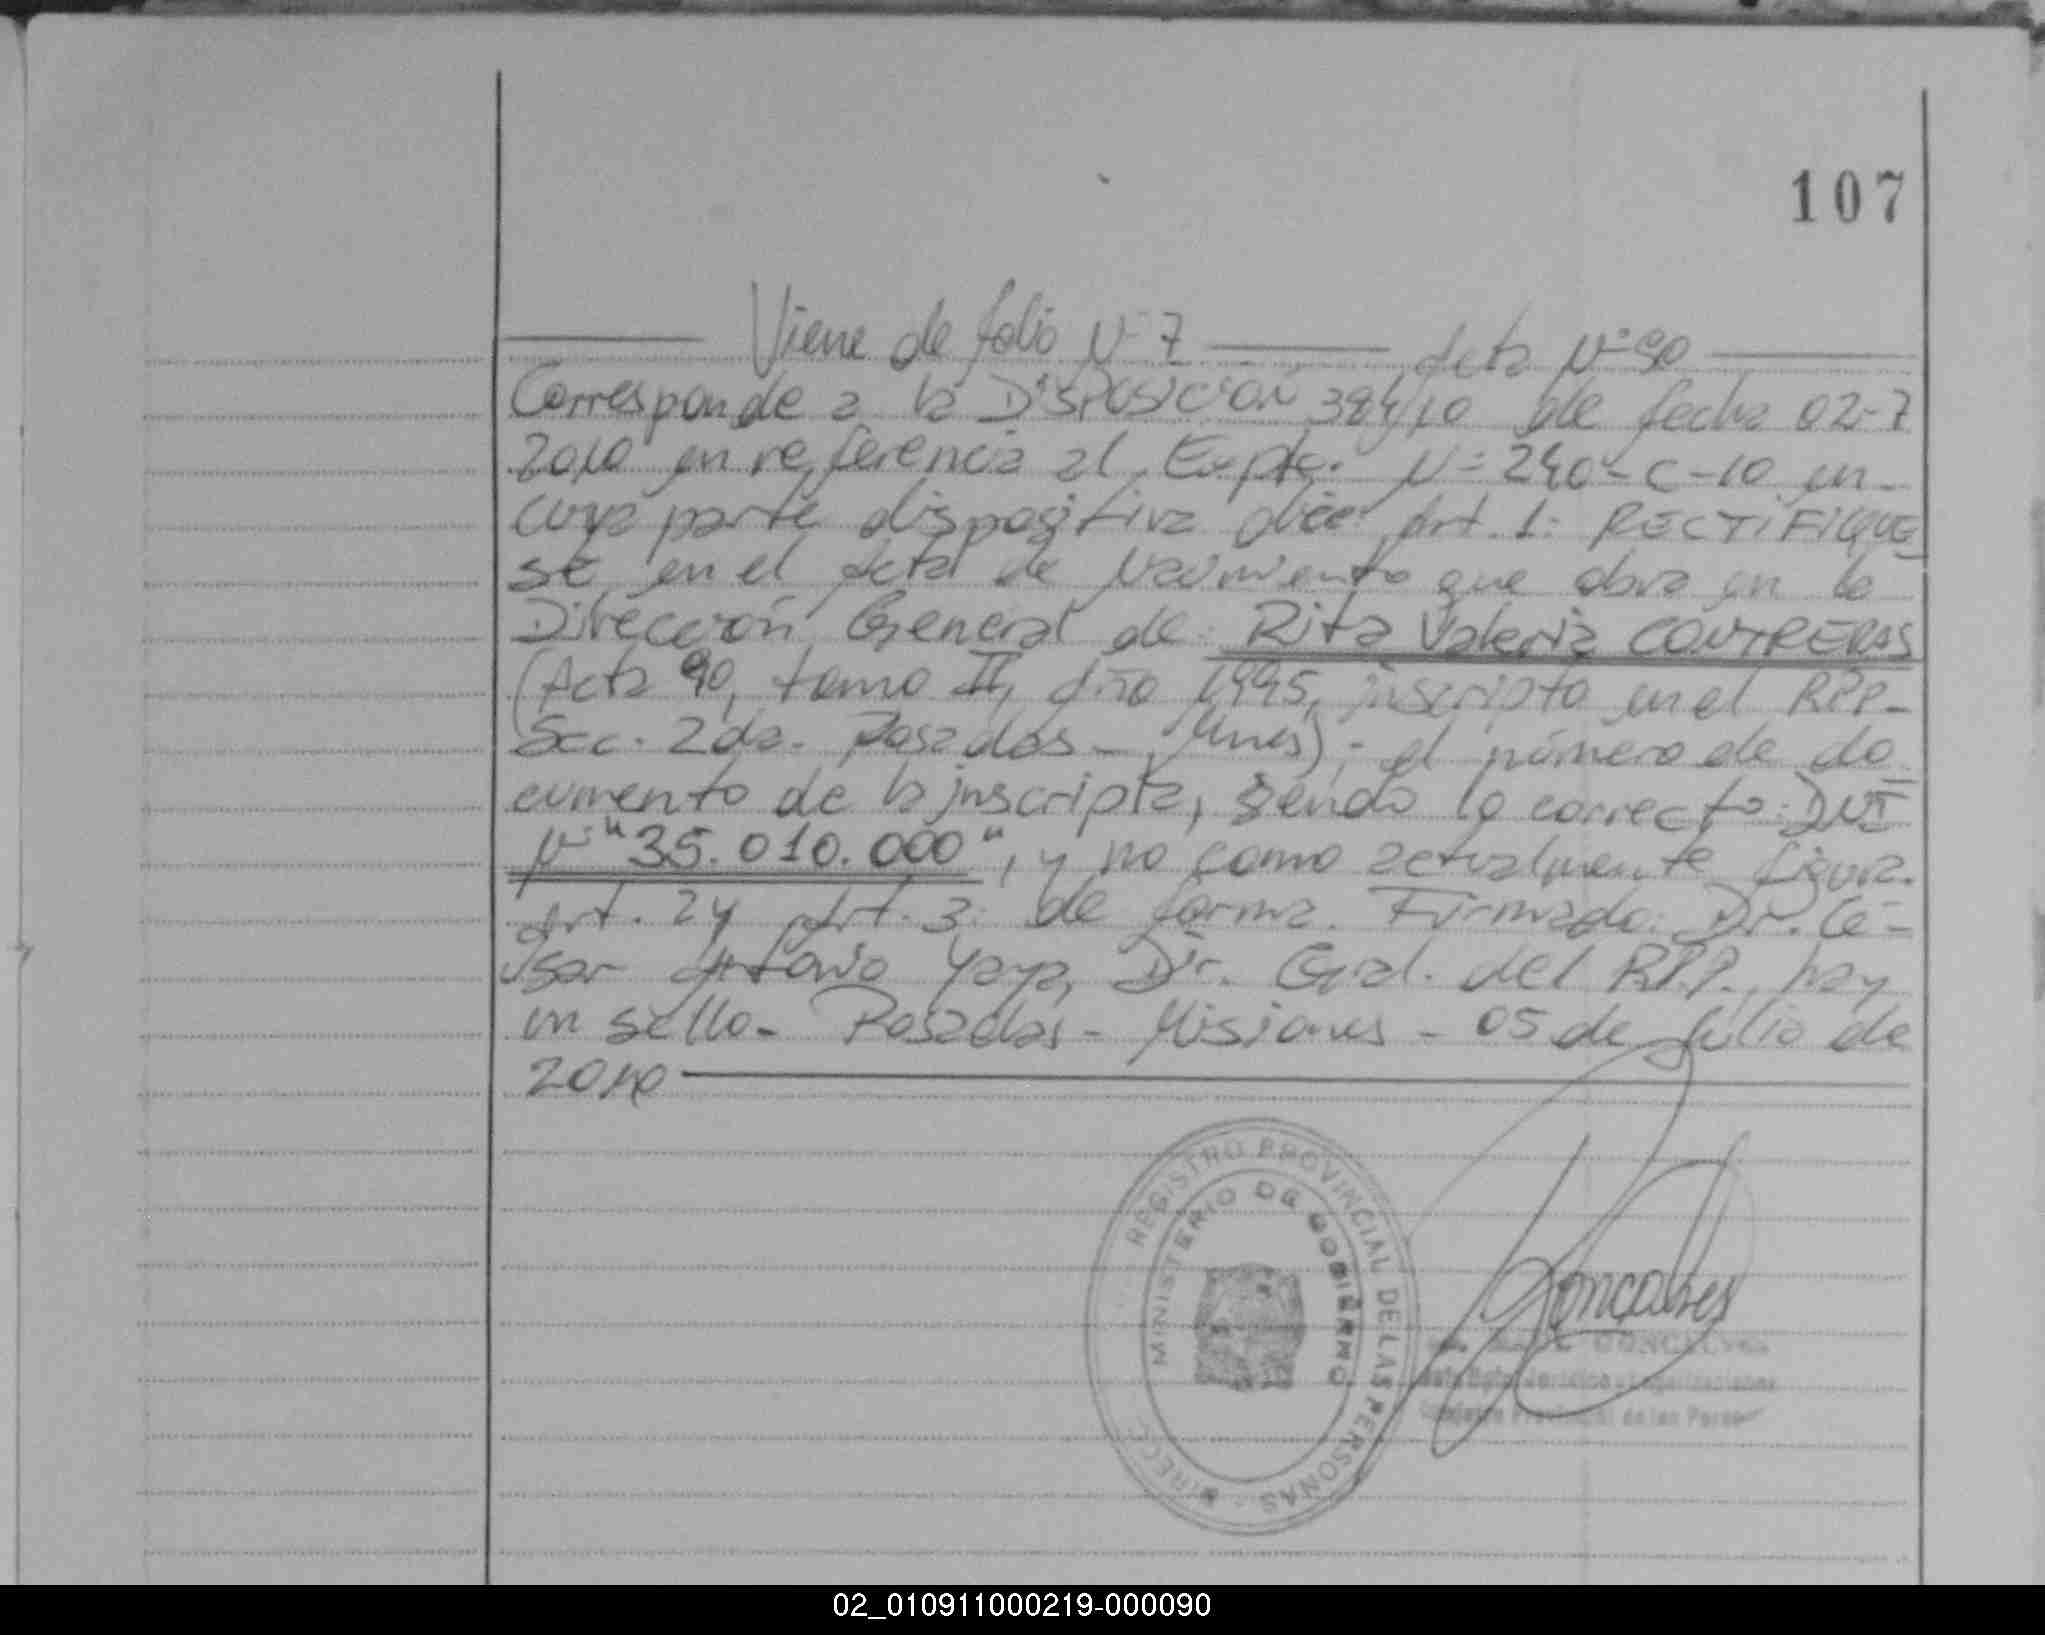 107
Viene de folio N° 7 Acta N° 90
Corresponde a la DISPOSICION 384/10 de fecha 02-7
2010 en referencia al Expte. N° 240-C-10 en
cuya parte dispositiva dice Art. 1: RECTIFIQUE
SE en el Acta de Nacimiento que obra en la
Dirección General de: Rita Valeria CONTRERAS
(Acta 90, tomo II, Año 1995, inscripto en el RPP-
Sec. 2da. Posadas - Mnes); el número de do
cumento de la inscripta, siendo lo correcto: DNI
N° "35.010.000", y no como actualmente figura.
Art. 2 y Art. 3: de forma. Firmado: Dr. Cé-
sar Antonio Yaya, Dir. Gral. del R.P.P., hay
un sello. Posadas - Misiones - 05 de Julio de
2010
REGISTRO PROVINCIAL DE LAS PERSONAS
MINISTERIO DE GOBIERNO
Gonçalves
GONCALVES
Jurídico - Legalizaciones
Provincial de las Person
02_010911000219-000090